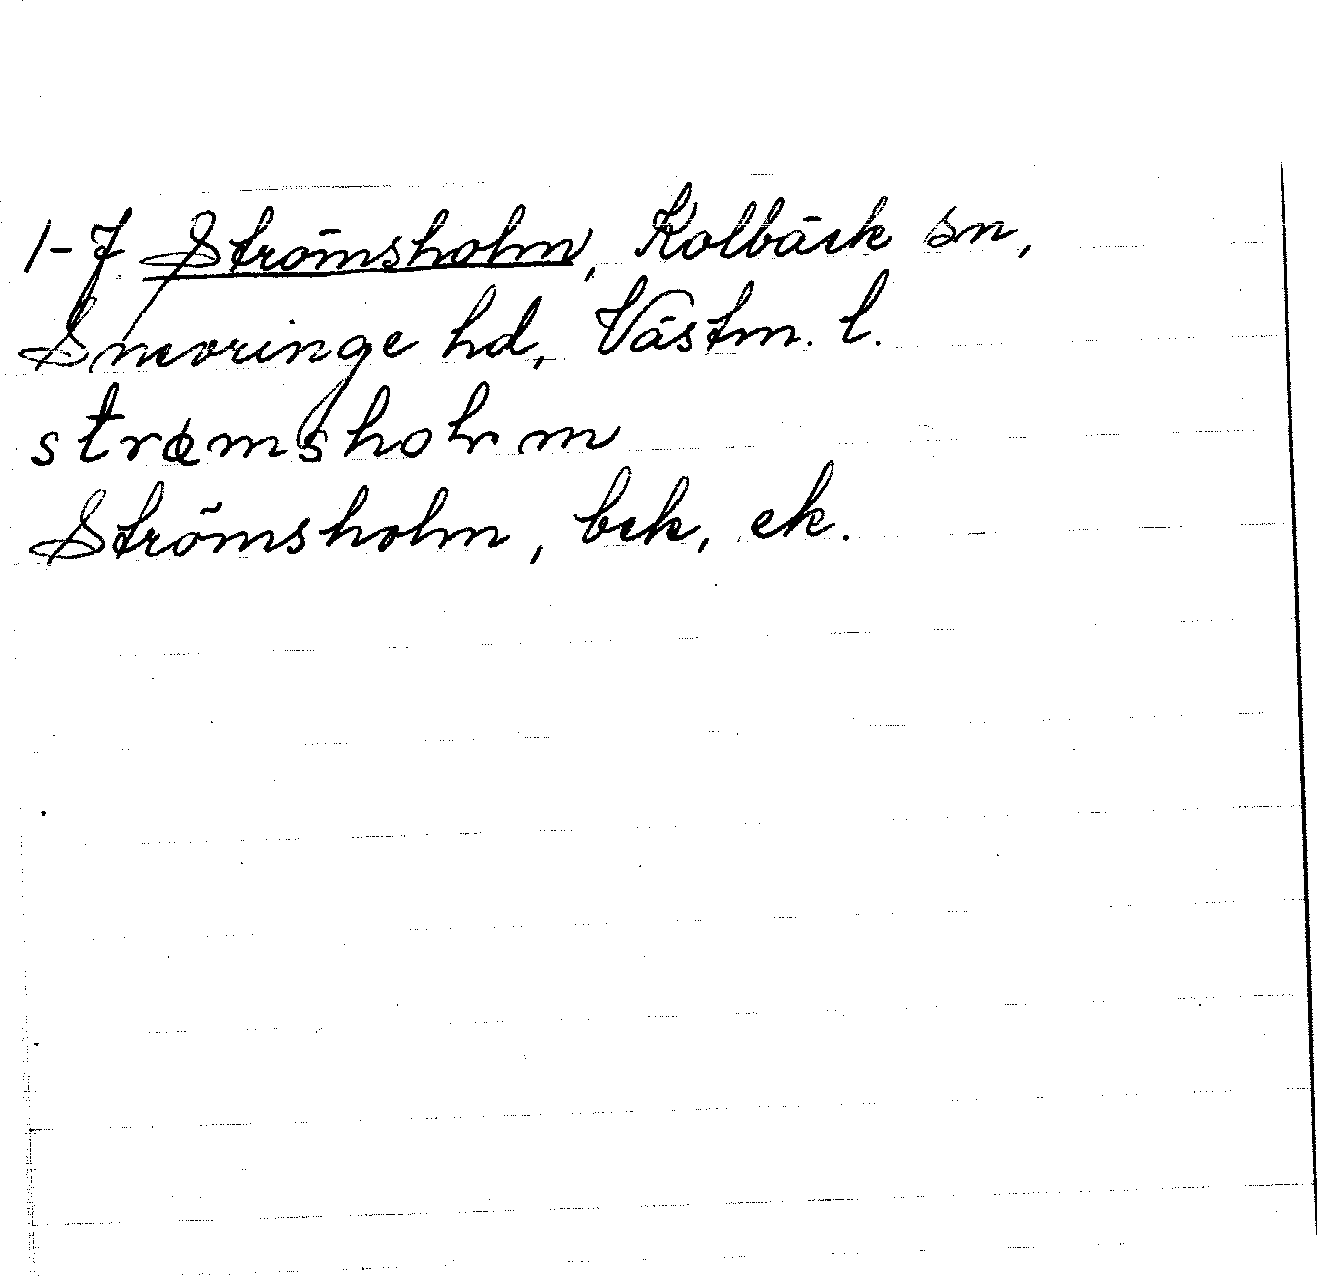 1-7. Strömsholm, Kolbäck sn,
Snevringe hd, Västm. l.
strømsholm m
Strömsholm, bek, ek.